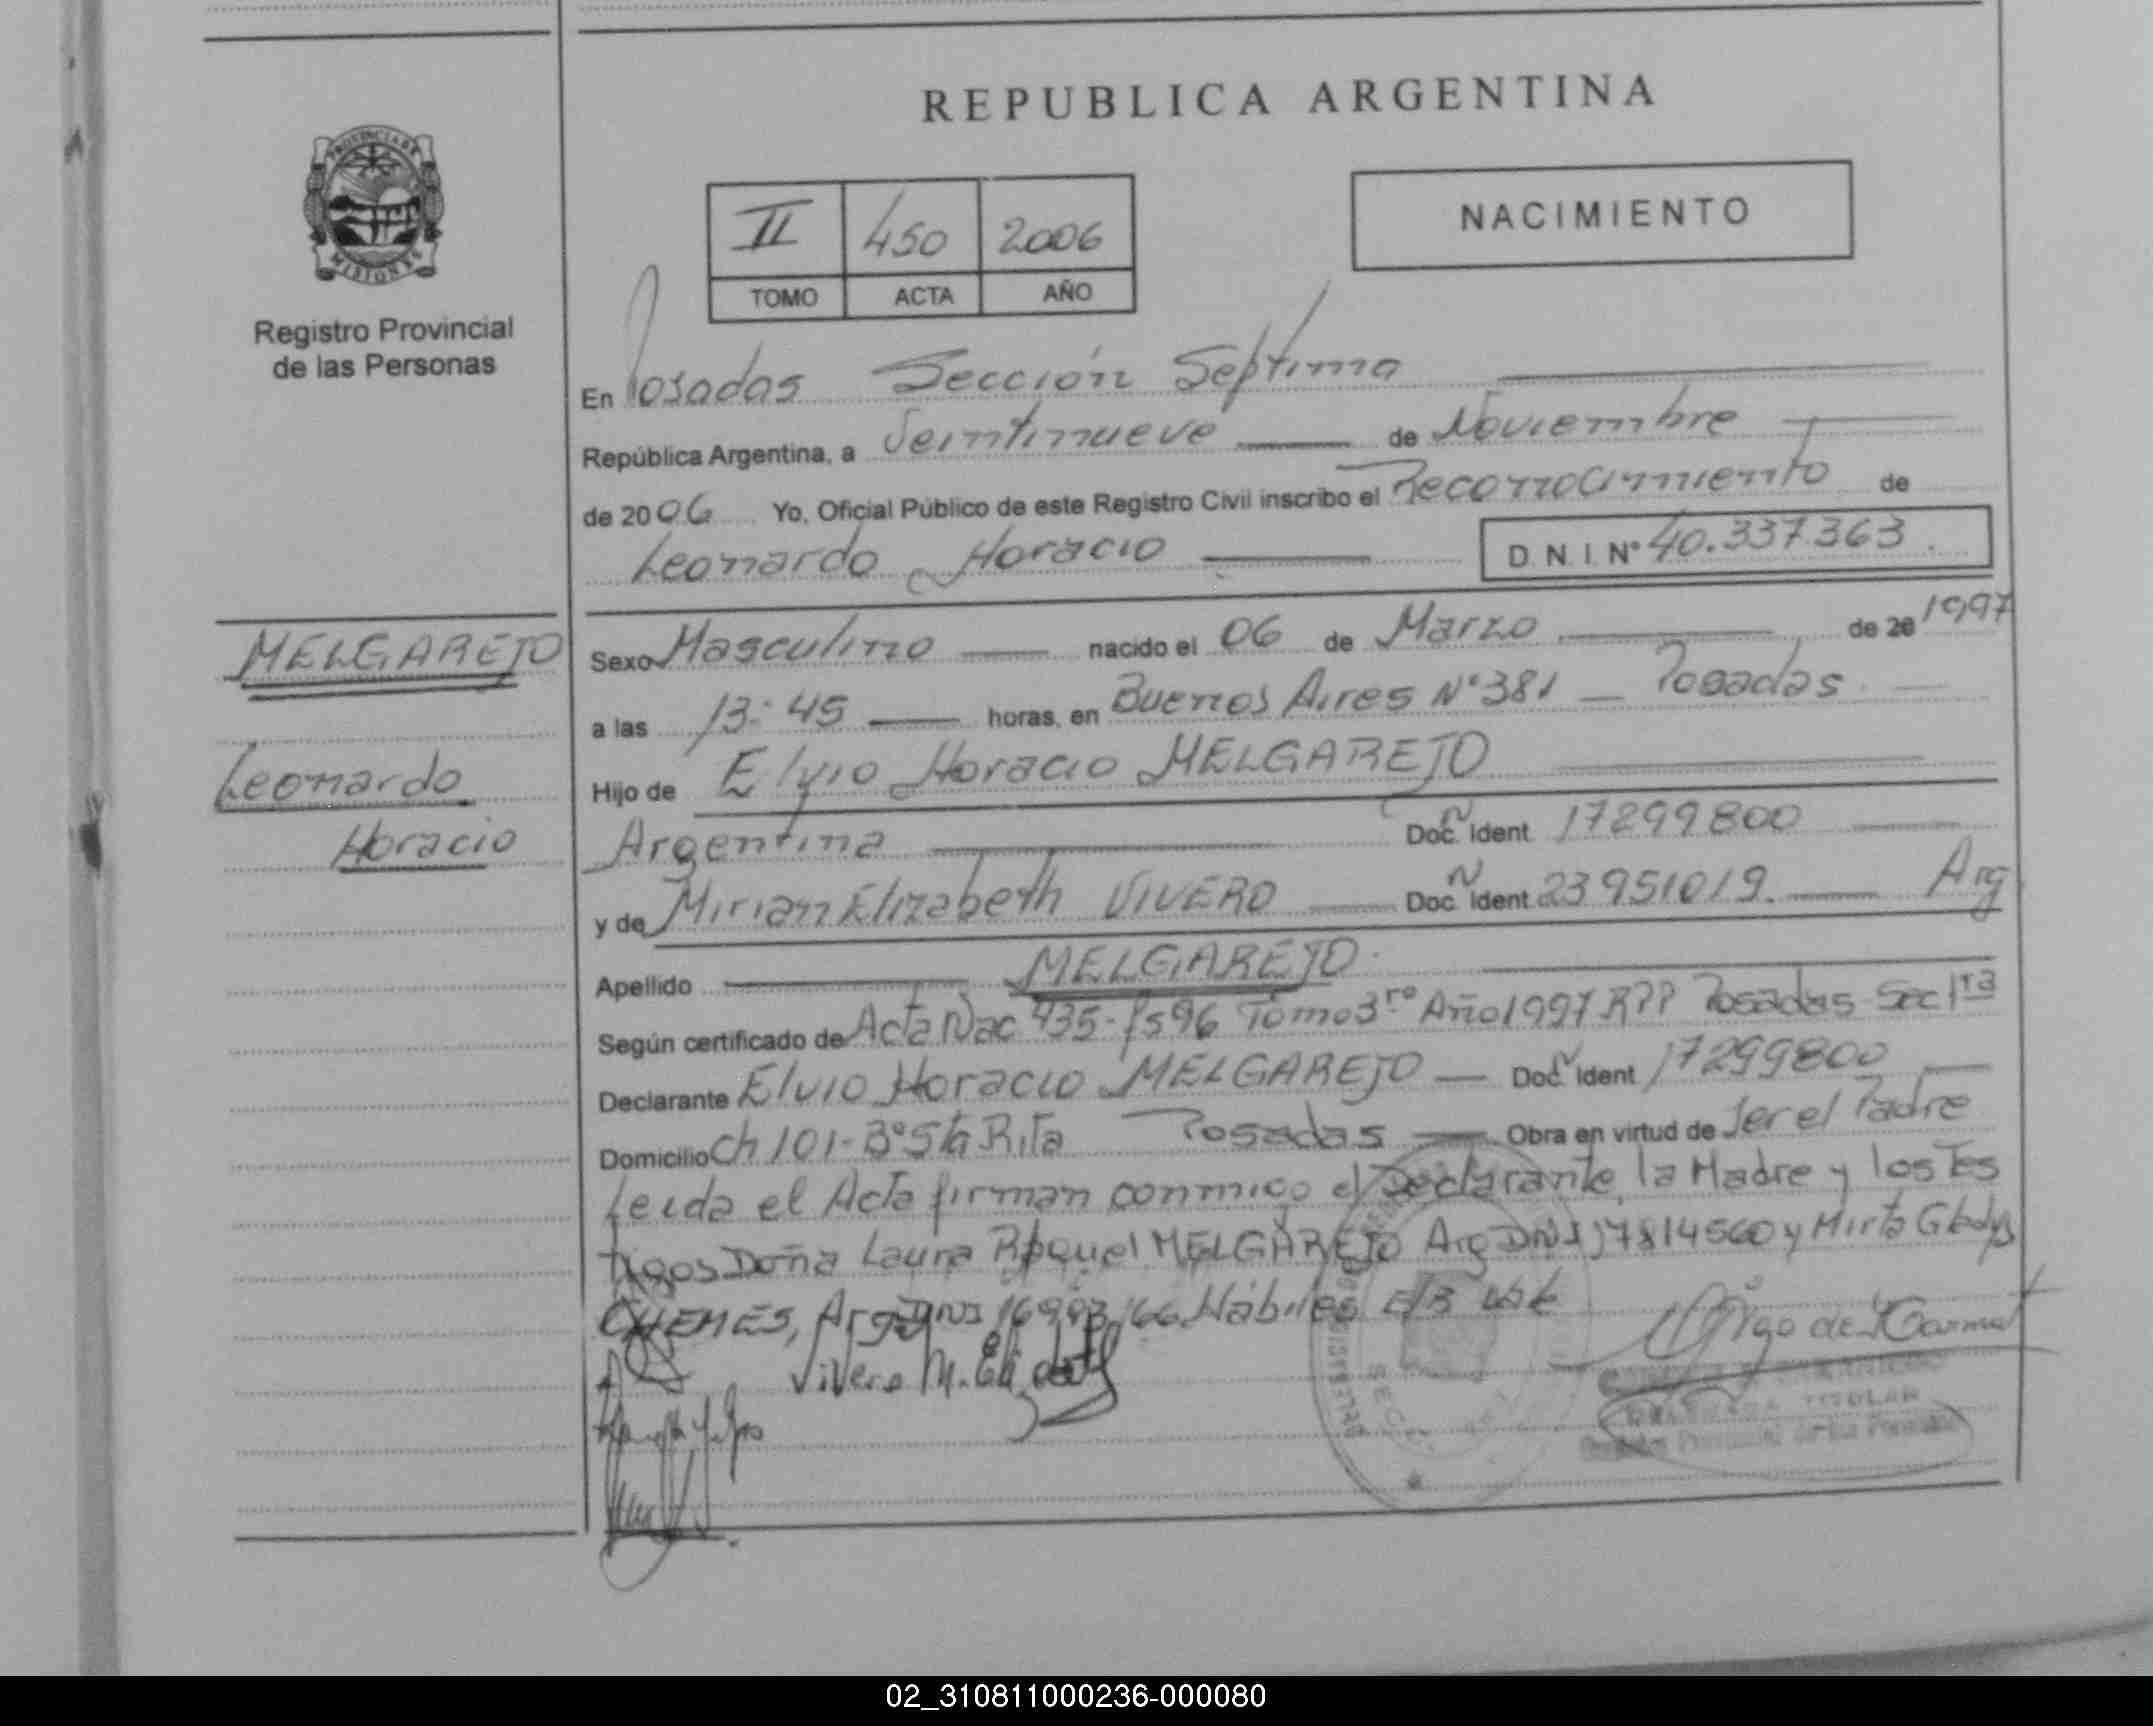 REPUBLICA ARGENTINA
PROVINCIA DE
MISIONES
Registro Provincial
de las Personas
II 450 2006
TOMO ACTA AÑO
NACIMIENTO
En Posadas Sección Septima
República Argentina, a Veintinueve de Noviembre
de 2006 Yo, Oficial Público de este Registro Civil inscribo el Reconocimiento de
Leonardo Horacio D.N.I. N° 40.337.363.
MELGAREJO
Leonardo
Horacio
Sexo Masculino nacido el 06 de Marzo de 20 1997
a las 13:45 horas, en Buenos Aires N° 381 — Posadas
Hijo de Elvio Horacio MELGAREJO
Argentina Doc. Ident 17299800
y de Mirian Elizabeth VIVERO Doc. Ident 23951019. Arg
Apellido MELGAREJO
Según certificado de Acta Nac 435- fs 96 Tomo 3ro Año 1997 RPP Posadas Sec 1ra
Declarante Elvio Horacio MELGAREJO — Doc. Ident 17299800
Domicilio Ch 101- B° Sta Rita Posadas — Obra en virtud de Ser el Padre
Leida el Acta firman conmigo el Declarante, la Madre y los Tes
tigos Doña Laura Raquel MELGAREJO Arg DNI 17814560 y Mirta Gladys
CHEMES, Arg DNI Hábiles
Vivero M.
TITULAR
02_310811000236-000080